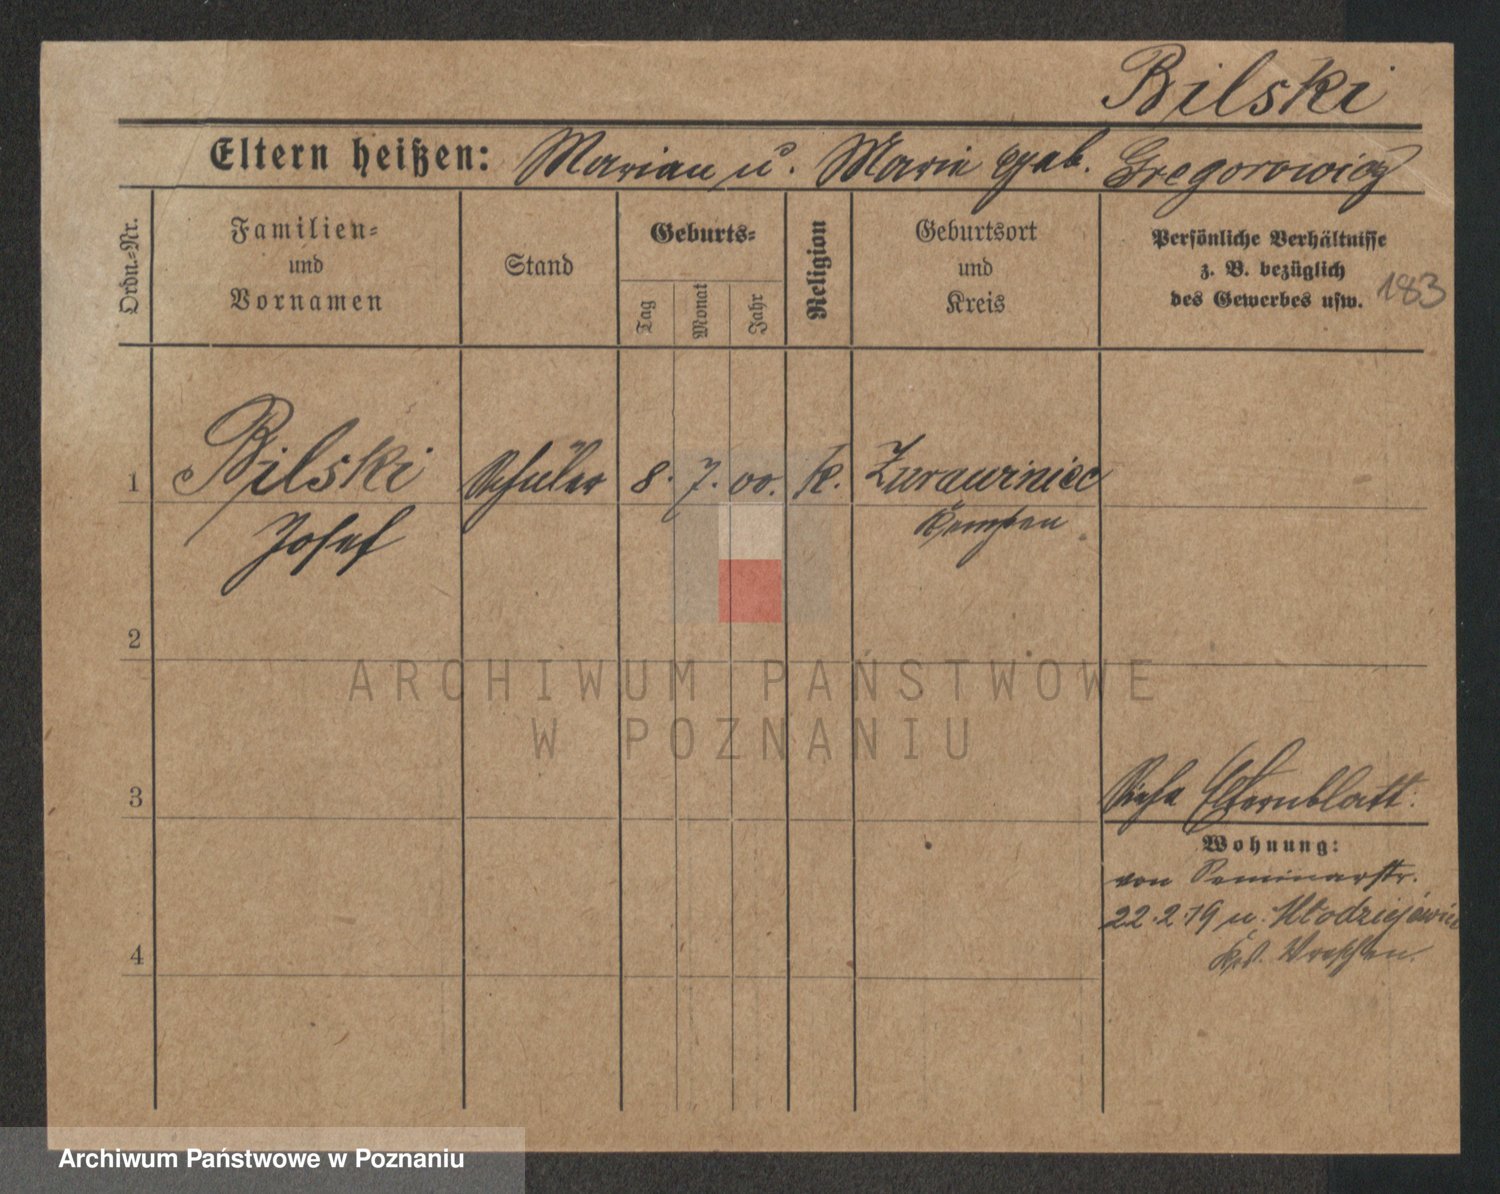 Bilski
Eltern heißen: Marian u. Marie geb. Gregorowicz
Ordn.-Nr.
Familien-
und
Vornamen
Stand
Geburts-
Tag
Monat
Jahr
Religion
Geburtsort
und
Kreis
Persönliche Verhältnisse
z. B. bezüglich
des Gewerbes usw.
183
1 Bilski Schüler 8. 7. 00. k. Zurawiniec
Josef Kempen
2
ARCHIWUM PAŃSTWOWE
W POZNANIU
3
Siehe Elternblatt.
Wohnung:
von Seminarstr.
22.2.19 n. Wlodziejewice
Krs. Wreschen.
4
Archiwum Państwowe w Poznaniu